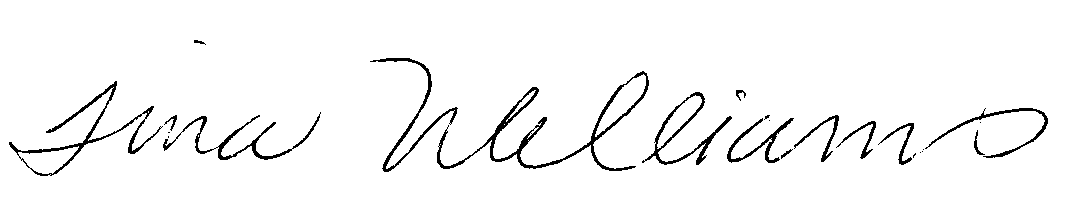 Tina Williams